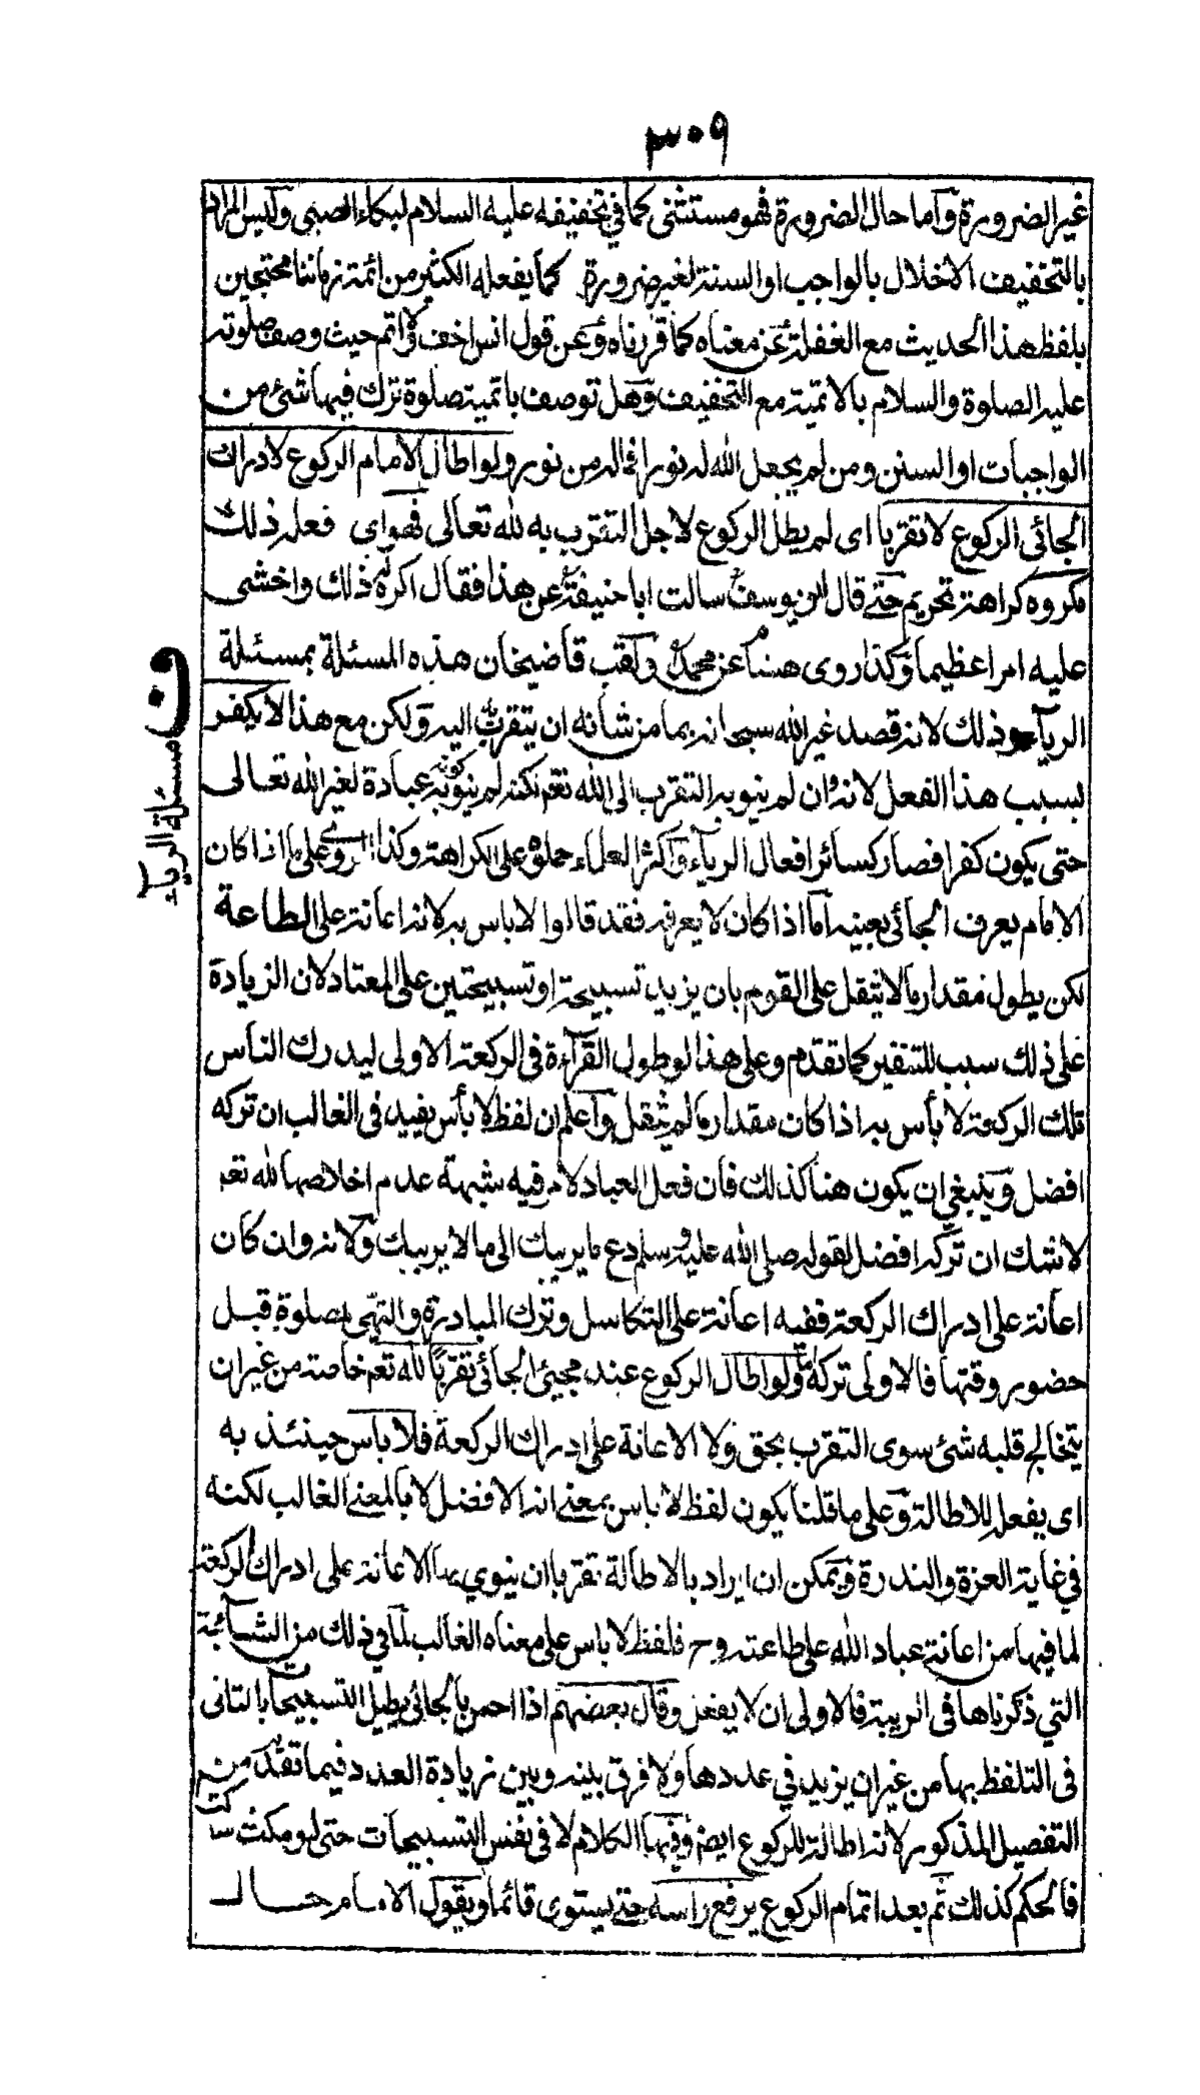 ٣٠٩
غير الضرورة وأما حال الضرورة فهو مستثنى كما في تخفيفه عليه السلام لبكاء الصبي وليس المراد
بالتخفيف الاخلال بالواجب او السنة لغير ضرورة كما يفعله الكثير من ائمة زماننا محتجين
بلفظ هذا الحديث مع الغفلة عن معناه كما قررناه وعن قول انس اخف في اتم حيث وصف صلوته
عليه الصلوة والسلام بالاتمية مع التخفيف وهل توصف باتمية صلوة ترك فيها شئ من
الواجبات او السنن ومن لم يجعل الله له نورا فما له من نور ولو اطال الامام الركوع لادراك
الجائى الركوع لا تقربا اى لم يطل الركوع لاجل التقرب به لله تعالى فهو اى فعله ذلك
مكروه كراهة تحريم حتى قال ابو يوسف سالت ابا حنيفة عن هذا فقال اكره ذلك واخشى
عليه امرا عظيما وكذا روى هشام عن محمد ولقب قاضيخان هذه المسئلة بمسئلة
الرياء وذلك لانه قصد غير الله سبحانه بما من شأنه ان يتقرب اليه ولكن مع هذا لا يكفر
بسبب هذا الفعل لانه وان لم ينو به التقرب الى الله تعم لكنه لم ينو كونه عبادة لغير الله تعالى
حتى يكون كفرا فصار كسائر افعال الرياء واكثر العلماء حملوه على الكراهة وكذا روى على ما اذا كان
الامام يعرف الجائى بعينه اما اذا كان لا يعرفه فقد قالوا لا باس به لانه اعانة على الطاعة
لكن يطول مقدار ما لا يثقل على القوم بان يزيد تسبيحة او تسبيحتين على المعتاد لان الزيادة
على ذلك سبب للتنفير كما تقدم وعلى هذا لو طول القرآءة فى الركعة الاولى ليدرك الناس
تلك الركعة لا بأس به اذا كان مقدار ما لم يثقل واعلم ان لفظ لا بأس يفيد فى الغالب ان تركه
افضل وينبغي ان يكون هنا كذلك فان فعل العبادة لامر فيه شبهة عدم اخلاصها لله تعم
لا شك ان تركه افضل لقوله صلى الله عليه وسلم دع ما يريبك الى ما لا يريبك ولانه وان كان
اعانة على ادراك الركعة ففيه اعانة على التكاسل وترك المبادرة والتهئ للصلوة قبل
حضور وقتها فالاولى تركه ولو اطال الركوع عند مجيئ الجائى تقربا لله تعم خاصة من غير ان
يتخالج قلبه شئ سوى التقرب بحق ولا الاعانة على ادراك الركعة فلا باس حينئذ به
اى يفعل الاطالة وعلى ما قلنا يكون لفظ لا باس بمعنى انه الافضل لا بالمعنى الغالب لكنه
في غاية العزة والندرة ويمكن ان يراد بالاطالة تقربا ان ينوي بها الاعانة على ادراك الركعة
لما فيها من اعانة عباد الله على طاعته وح فلفظ لا باس على معناه الغالب لما في ذلك من الشائبة
التي ذكرناها فى الريبة فالاولى ان لا يفعل وقال بعضهم اذا احس بالجائى يطيل التسبيحات بالتانى
فى التلفظ بها من غير ان يزيد في عددها ولا فرق بينه وبين زيادة العدد فيما تقدم من
التفصيل المذكور لانه اطالة للركوع ايضا وفيها الكلام لا فى نفس التسبيحات حتى لو مكث ساكتا
فالحكم كذلك ثم بعد اتمام الركوع يرفع راسه حتى يستوى قائما ويقول الامام حال
ف مسئلة الرياء